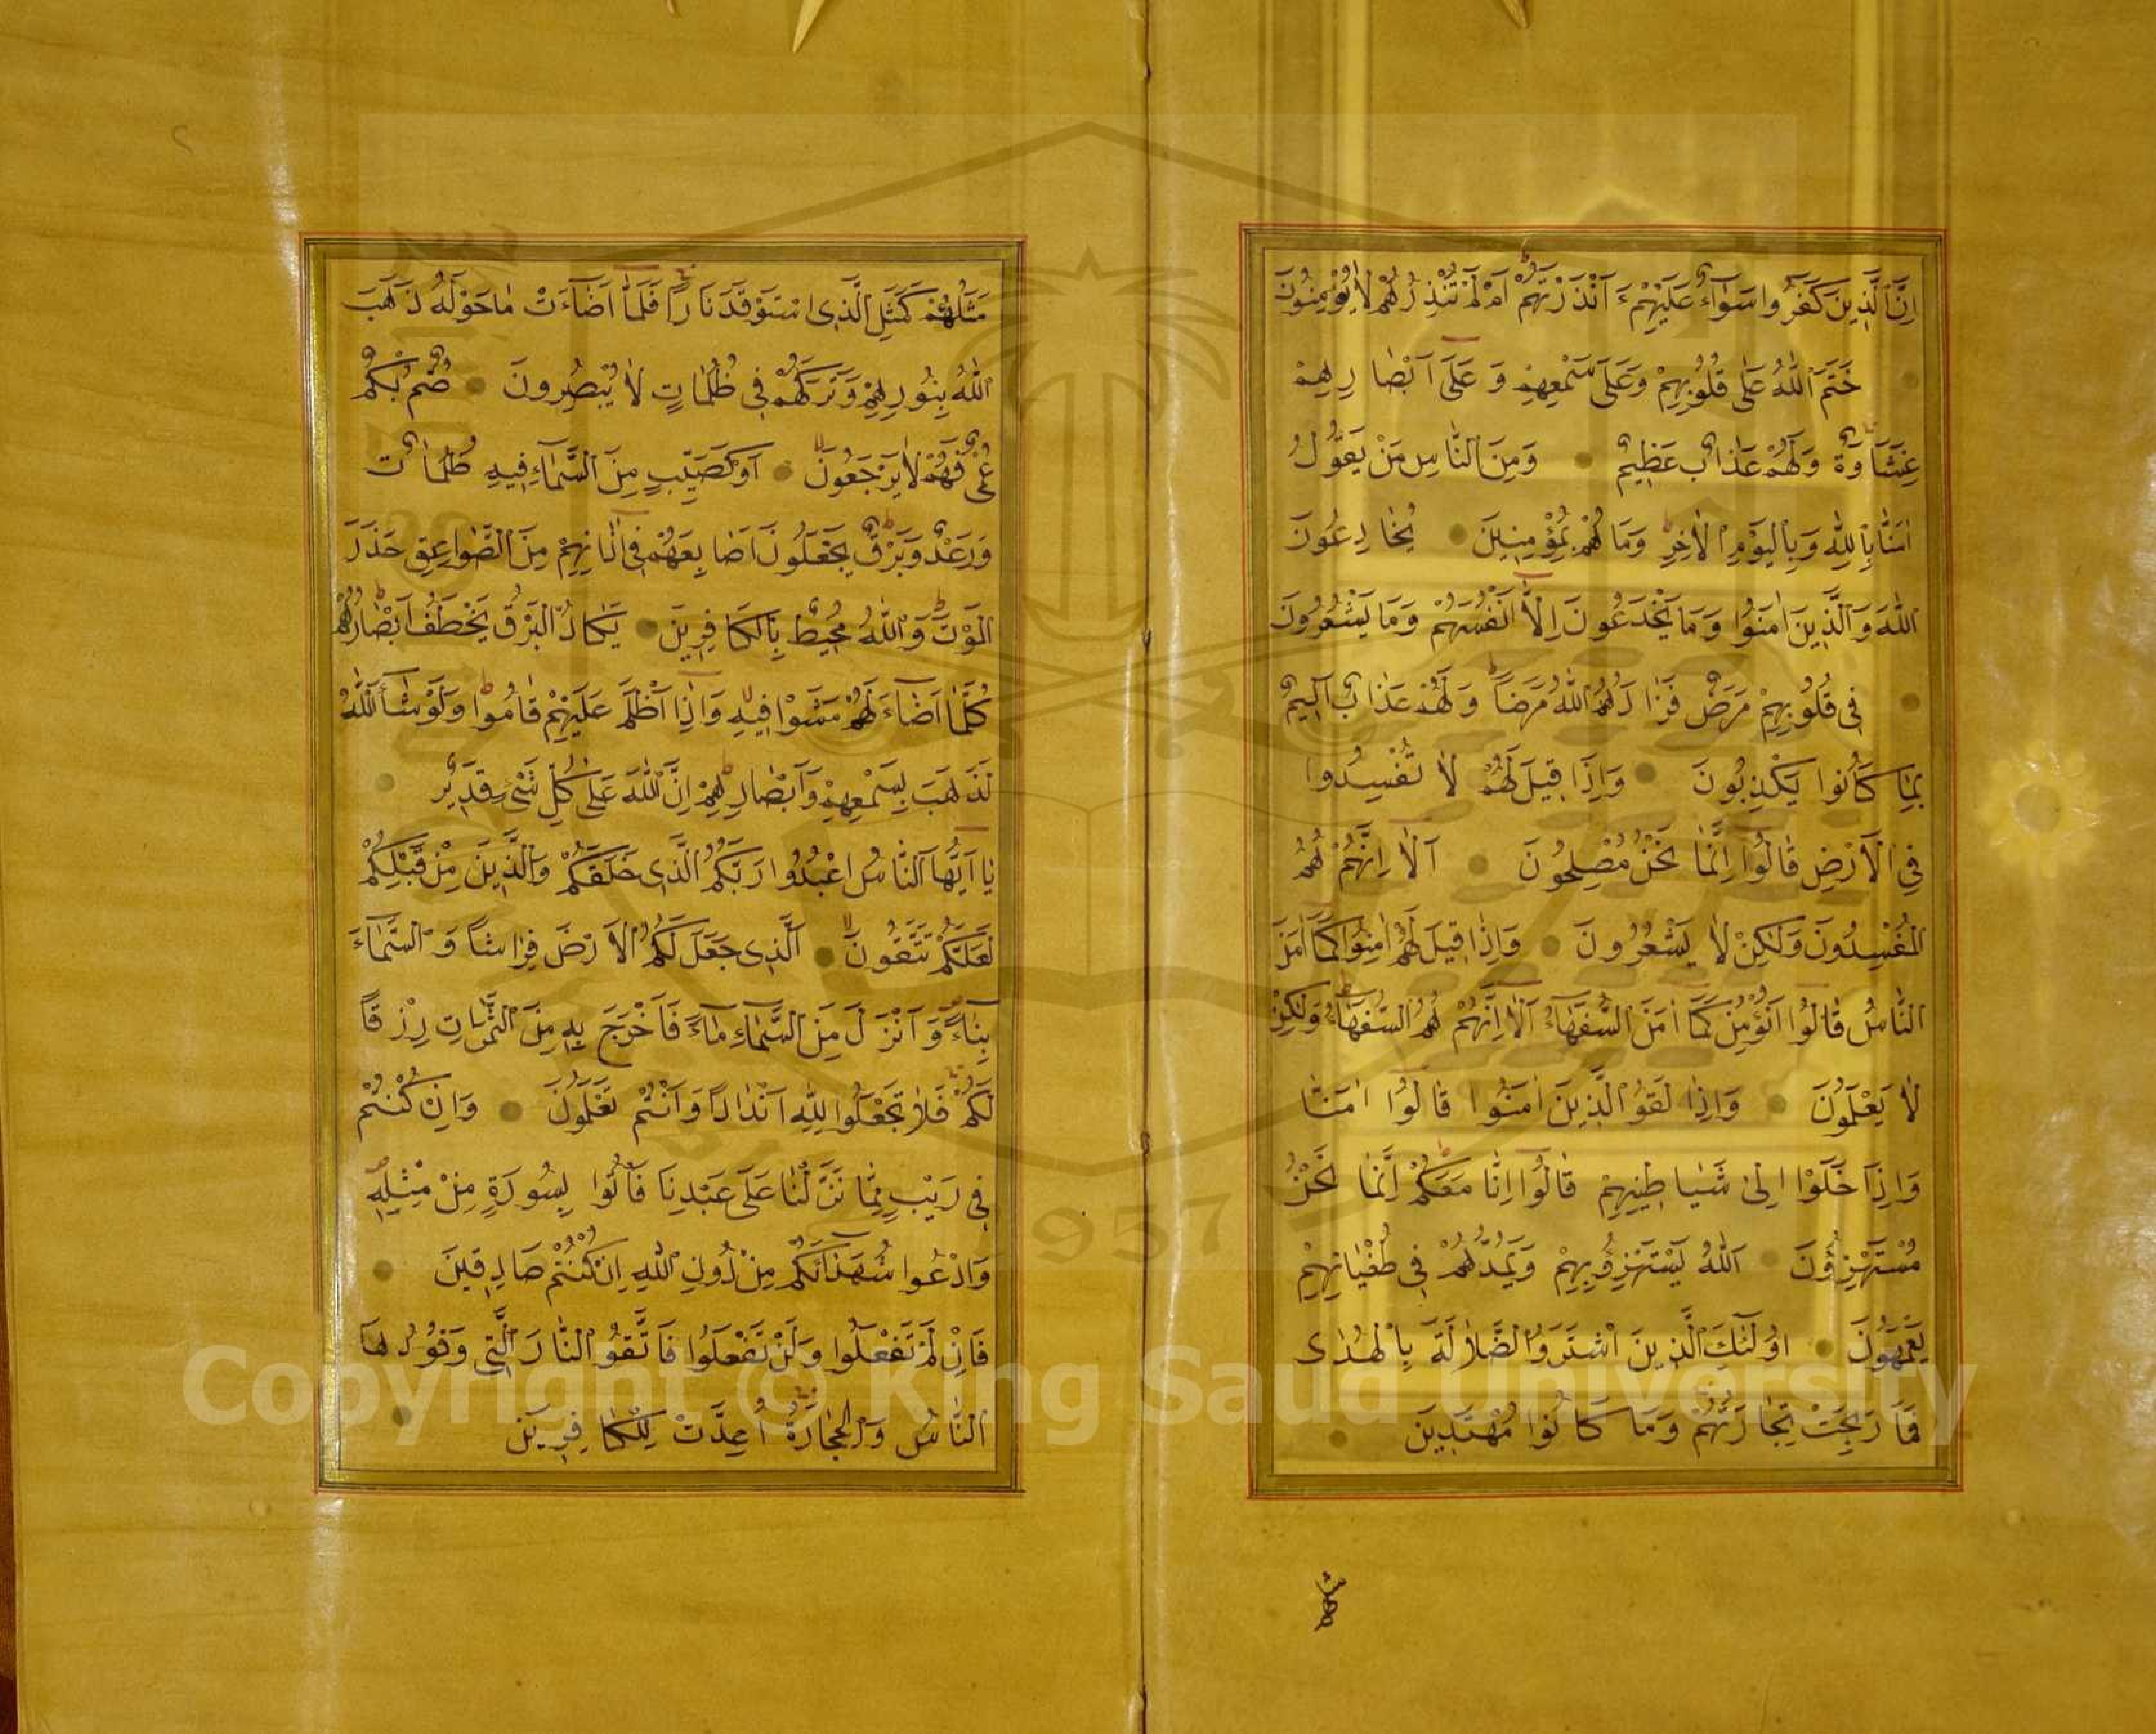 اِنَّ الَّذِينَ كَفَرُوا سَوَاءٌ عَلَيْهِمْ ءَاَنْذَرْتَهُمْ اَمْ لَمْ تُنْذِرْهُمْ لَا يُؤْمِنُونَ
خَتَمَ اللّٰهُ عَلٰى قُلُوبِهِمْ وَعَلٰى سَمْعِهِمْ وَعَلٰى اَبْصَارِهِمْ
غِشَاوَةٌ وَلَهُمْ عَذَابٌ عَظِيمٌ وَمِنَ النَّاسِ مَنْ يَقُولُ
اٰمَنَّا بِاللّٰهِ وَبِالْيَوْمِ الْاٰخِرِ وَمَا هُمْ بِمُؤْمِنِينَ يُخَادِعُونَ
اللّٰهَ وَالَّذِينَ اٰمَنُوا وَمَا يَخْدَعُونَ اِلَّا اَنْفُسَهُمْ وَمَا يَشْعُرُونَ
فِى قُلُوبِهِمْ مَرَضٌ فَزَادَهُمُ اللّٰهُ مَرَضًا وَلَهُمْ عَذَابٌ اَلِيمٌ
بِمَا كَانُوا يَكْذِبُونَ وَاِذَا قِيلَ لَهُمْ لَا تُفْسِدُوا
فِى الْاَرْضِ قَالُوا اِنَّمَا نَحْنُ مُصْلِحُونَ اَلَا اِنَّهُمْ هُمُ
الْمُفْسِدُونَ وَلٰكِنْ لَا يَشْعُرُونَ وَاِذَا قِيلَ لَهُمْ اٰمِنُوا كَمَا اٰمَنَ
النَّاسُ قَالُوا اَنُؤْمِنُ كَمَا اٰمَنَ السُّفَهَاءُ اَلَا اِنَّهُمْ هُمُ السُّفَهَاءُ وَلٰكِنْ
لَا يَعْلَمُونَ وَاِذَا لَقُوا الَّذِينَ اٰمَنُوا قَالُوا اٰمَنَّا
وَاِذَا خَلَوْا اِلٰى شَيَاطِينِهِمْ قَالُوا اِنَّا مَعَكُمْ اِنَّمَا نَحْنُ
مُسْتَهْزِؤُنَ اَللّٰهُ يَسْتَهْزِؤُ بِهِمْ وَيَمُدُّهُمْ فِى طُغْيَانِهِمْ
يَعْمَهُونَ اُولٰئِكَ الَّذِينَ اشْتَرَوُا الضَّلَالَةَ بِالْهُدٰى
فَمَا رَبِحَتْ تِجَارَتُهُمْ وَمَا كَانُوا مُهْتَدِينَ
مثلهم
مَثَلُهُمْ كَمَثَلِ الَّذِى اسْتَوْقَدَ نَارًا فَلَمَّا اَضَاءَتْ مَا حَوْلَهُ ذَهَبَ
اللّٰهُ بِنُورِهِمْ وَتَرَكَهُمْ فِى ظُلُمَاتٍ لَا يُبْصِرُونَ صُمٌّ بُكْمٌ
عُمْىٌ فَهُمْ لَا يَرْجِعُونَ اَوْ كَصَيِّبٍ مِنَ السَّمَاءِ فِيهِ ظُلُمَاتٌ
وَرَعْدٌ وَبَرْقٌ يَجْعَلُونَ اَصَابِعَهُمْ فِى اٰذَانِهِمْ مِنَ الصَّوَاعِقِ حَذَرَ
الْمَوْتِ وَاللّٰهُ مُحِيطٌ بِالْكَافِرِينَ يَكَادُ الْبَرْقُ يَخْطَفُ اَبْصَارَهُمْ
كُلَّمَا اَضَاءَ لَهُمْ مَشَوْا فِيهِ وَاِذَا اَظْلَمَ عَلَيْهِمْ قَامُوا وَلَوْ شَاءَ اللّٰهُ
لَذَهَبَ بِسَمْعِهِمْ وَاَبْصَارِهِمْ اِنَّ اللّٰهَ عَلٰى كُلِّ شَىْءٍ قَدِيرٌ
يَا اَيُّهَا النَّاسُ اعْبُدُوا رَبَّكُمُ الَّذِى خَلَقَكُمْ وَالَّذِينَ مِنْ قَبْلِكُمْ
لَعَلَّكُمْ تَتَّقُونَ اَلَّذِى جَعَلَ لَكُمُ الْاَرْضَ فِرَاشًا وَالسَّمَاءَ
بِنَاءً وَاَنْزَلَ مِنَ السَّمَاءِ مَاءً فَاَخْرَجَ بِهِ مِنَ الثَّمَرَاتِ رِزْقًا
لَكُمْ فَلَا تَجْعَلُوا لِلّٰهِ اَنْدَادًا وَاَنْتُمْ تَعْلَمُونَ وَاِنْ كُنْتُمْ
فِى رَيْبٍ مِمَّا نَزَّلْنَا عَلٰى عَبْدِنَا فَأْتُوا بِسُورَةٍ مِنْ مِثْلِهِ
وَادْعُوا شُهَدَاءَكُمْ مِنْ دُونِ اللّٰهِ اِنْ كُنْتُمْ صَادِقِينَ
فَاِنْ لَمْ تَفْعَلُوا وَلَنْ تَفْعَلُوا فَاتَّقُوا النَّارَ الَّتِى وَقُودُهَا
النَّاسُ وَالْحِجَارَةُ اُعِدَّتْ لِلْكَافِرِينَ
Copyright © King Saud University
1957